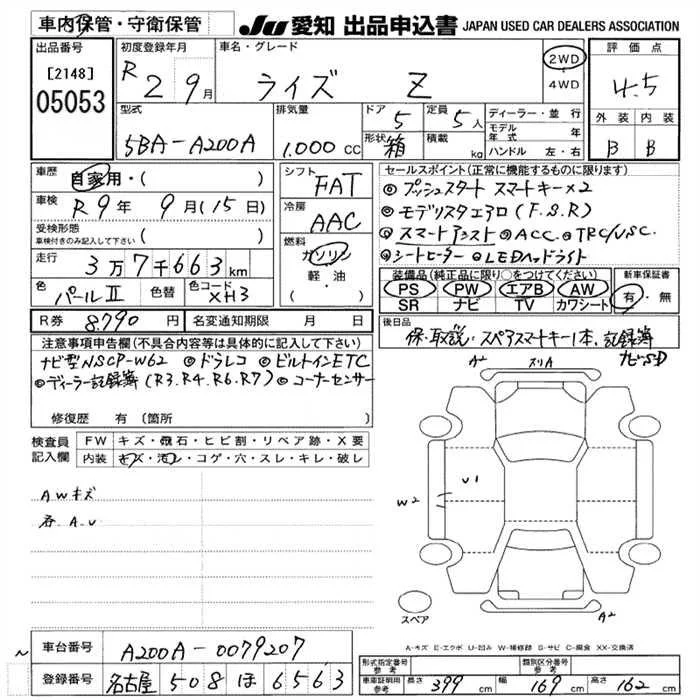 車内保管・守衛保管
JU 愛知 出品申込書 JAPAN USED CAR DEALERS ASSOCIATION
出品番号
[2148]
05053
初度登録年月
R 2 9月
車名・グレード
ライズ Z
2WD
4WD
評価点
4.5
外装 内装
B B
型式
5BA-A200A
排気量
1.000 CC
ドア 5
定員 5人
形状 箱
積載 kg
ディーラー・並行
モデル年式 年
ハンドル 左・右
車歴
自家用・( )
車検
R9年 9月(15日)
受検形態
車検付きのみ記入して下さい ( )
走行
3万7千663km
色 パールⅡ 色替 色コード XH3
シフト
FAT
冷房
AAC
燃料
ガソリン
軽・油
( )
セールスポイント(正常に機能するものに限ります)
◎プッシュスタート スマートキー×2
◎モデリスタエアロ(F.S.R)
◎スマートアシスト ◎ACC. ◎TRC/VSC.
◎シートヒーター ◎LEDヘッドライト
装備品(純正品に限り○をつけてください)
PS PW エアB AW
SR ナビ TV カワシート
新車保証書
有・無
R券 8,790円 名変通知期限 月 日
後日品
保・取説・スペアスマートキー1本、記録簿
ナビSD
注意事項申告欄(不具合内容等は具体的に記入して下さい)
ナビ型NSCP-W62 ◎ドラレコ ◎ビルトインETC
◎ディーラー記録簿(R3.R4.R6.R7) ◎コーナーセンサー
修復歴 有(箇所 )
検査員記入欄
FW キズ・飛石・ヒビ割・リペア跡・X要
内装 キズ・汚レ・コゲ・穴・スレ・キレ・破レ
AWキズ
各.A.U
A2 スリA
U1
W2
スペア
A2
A-キズ E-エクボ U-凹み W-補修跡 S-サビ C-腐食 XX-交換済
車台番号 A200A-0079207
登録番号 名古屋 508 ほ 6563
形式指定番号 参考
類別区分番号 参考
車庫証明用 参考 長さ 399cm 幅 169cm 高さ 162cm